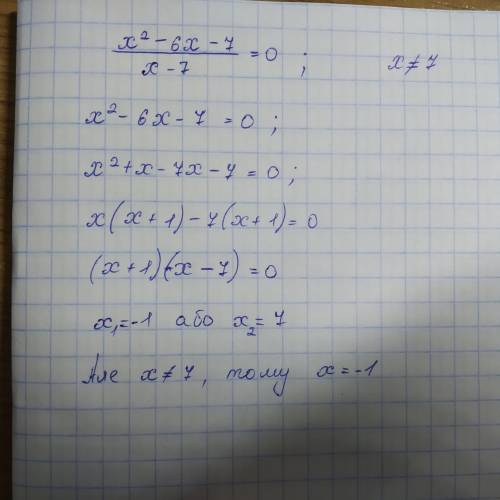 (x² - 6x - 7)/(x - 7) = 0 ; x ≠ 7
x² - 6x - 7 = 0 ;
x² + x - 7x - 7 = 0 ;
x(x + 1) - 7(x + 1) = 0
(x + 1)(x - 7) = 0
x₁ = -1 або x₂ = 7
Але x ≠ 7, тому x = -1